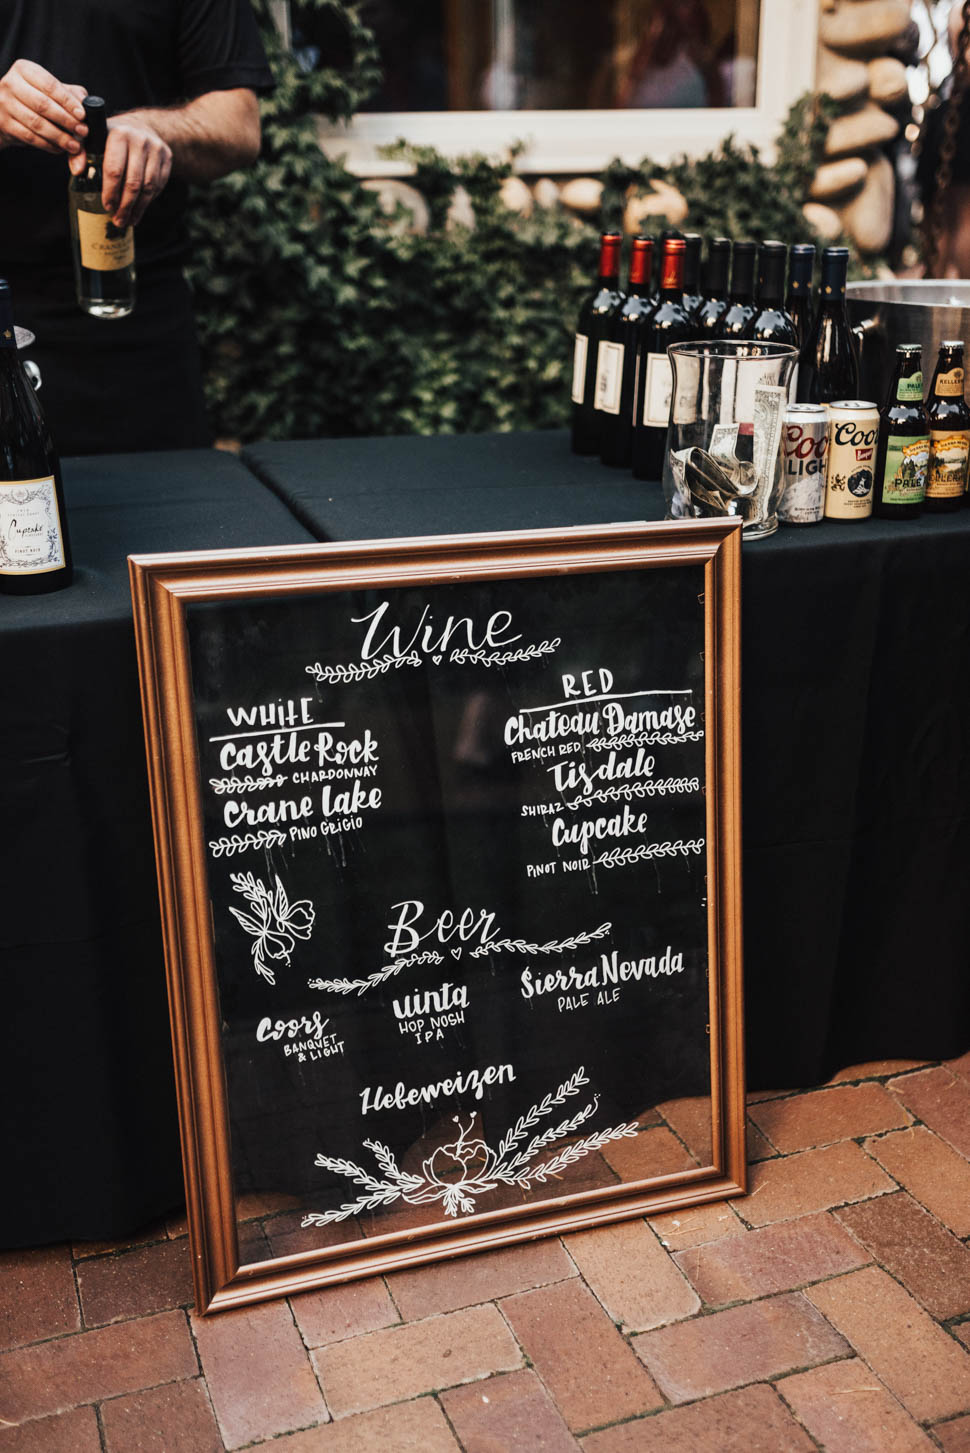 CRANE LAKE
Cupcake
PINOT NOIR
Coo
LIGH
Coo
PALE
KELLER
PALE
Wine
WHITE
Castle Rock
CHARDONNAY
Crane Lake
PINO GRIGIO
RED
Chateau Damase
FRENCH RED
Tisdale
SHIRAZ
Cupcake
PINOT NOIR
Beer
Coors
BANQUET
& LIGHT
uinta
HOP NOSH
IPA
Sierra Nevada
PALE ALE
Hefeweizen